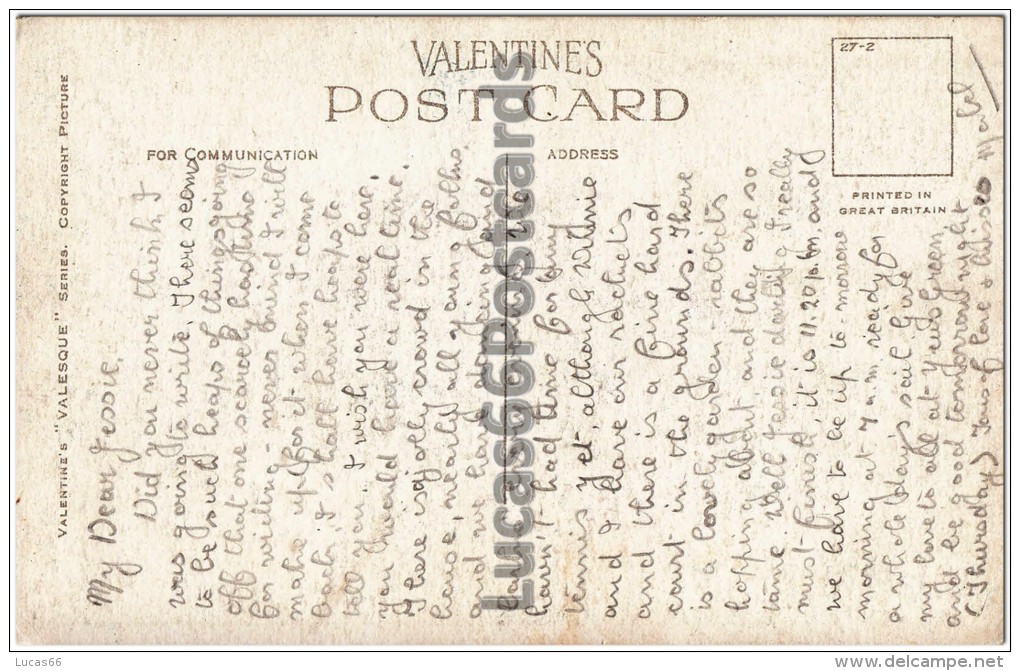 VALENTINE'S
POST CARD
FOR COMMUNICATION
ADDRESS
27-2
PRINTED IN
GREAT BRITAIN
VALENTINE'S "VALESQUE" SERIES. COPYRIGHT PICTURE
My Dear Jessie,
Did you never think I
was going to write. There seems
to be such heaps of things going
off that one scarcely has time
for writing - never mind I will
make up for it when I come
back, I shall have heaps to
tell you. I wish you were here.
you would have a real time.
There is a jolly crowd in the
house, nearly all young folks.
and we have
haven't had time for any
tennis yet, although Winnie
and I have our rackets
and there is a fine hard
court in the grounds. There
is a lovely garden - rabbits
hopping about and they are so
tame. Well Jessie darling I really
must finish, it is 11.20 p.m. and
we have to be up to morrow
morning at 7 a.m. ready for
a whole day's sail. Give
my love to all at
and be good tomorrow night
(Thursday) Tons of love & kisses Mabel
Lucas66Postcards
Lucas66
delcampe.net